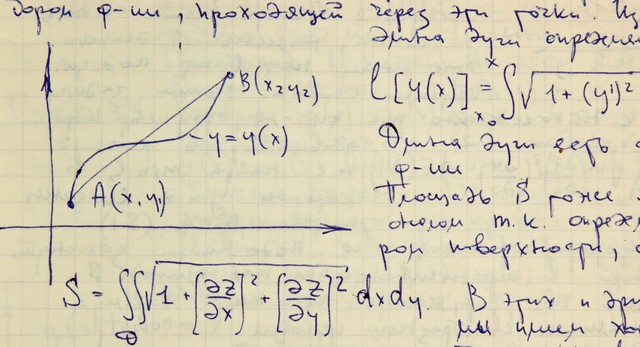 бором ф-ии, проходящей через эти точки. Из
Длина дуги определ
B(x₂y₂)
l[y(x)] = ∫ₓ₀ˣ √1 + (y')²
y = y(x)
Длина дуги есть
ф-ии
A(x, y₁)
Площадь S тоже
т.к. опреде
ром поверхности,
S = ∬_D √1 + [∂z/∂x]² + [∂z/∂y]² dxdy. В этих и
мы имеем